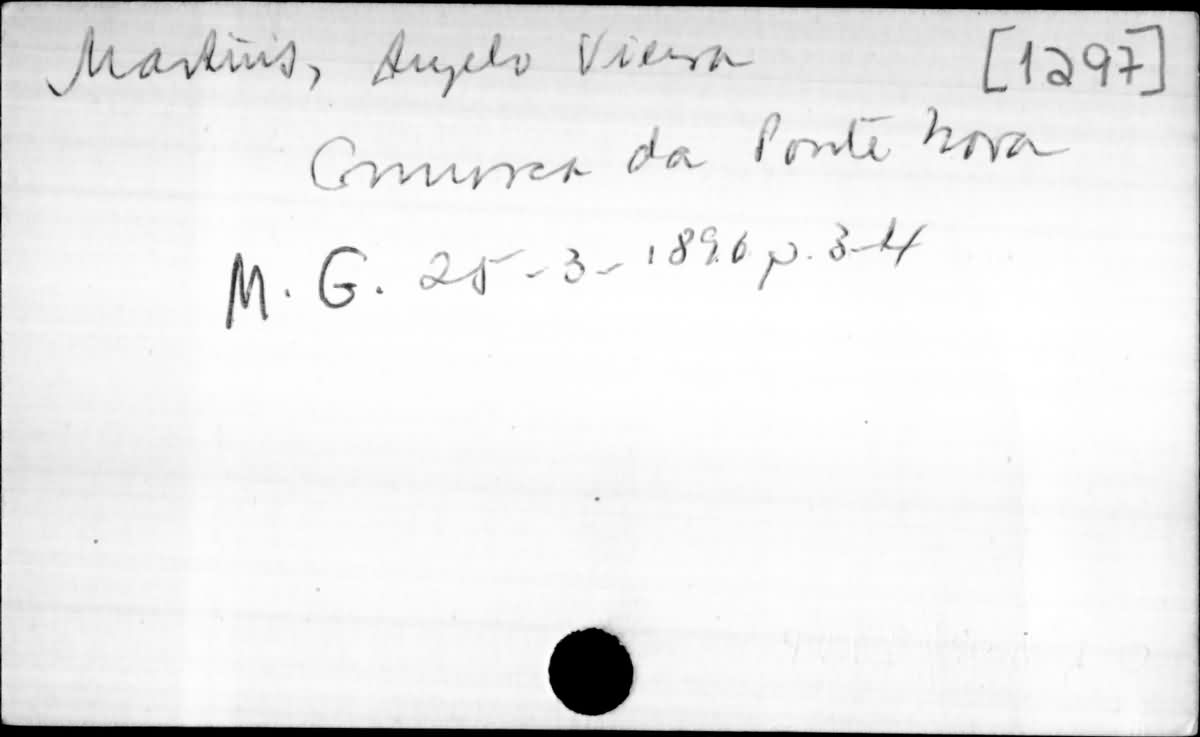 Martins, Angelo Vieira [1297]
Comarca da Ponte Nova
M. G. 25-3-1896 p. 3-4